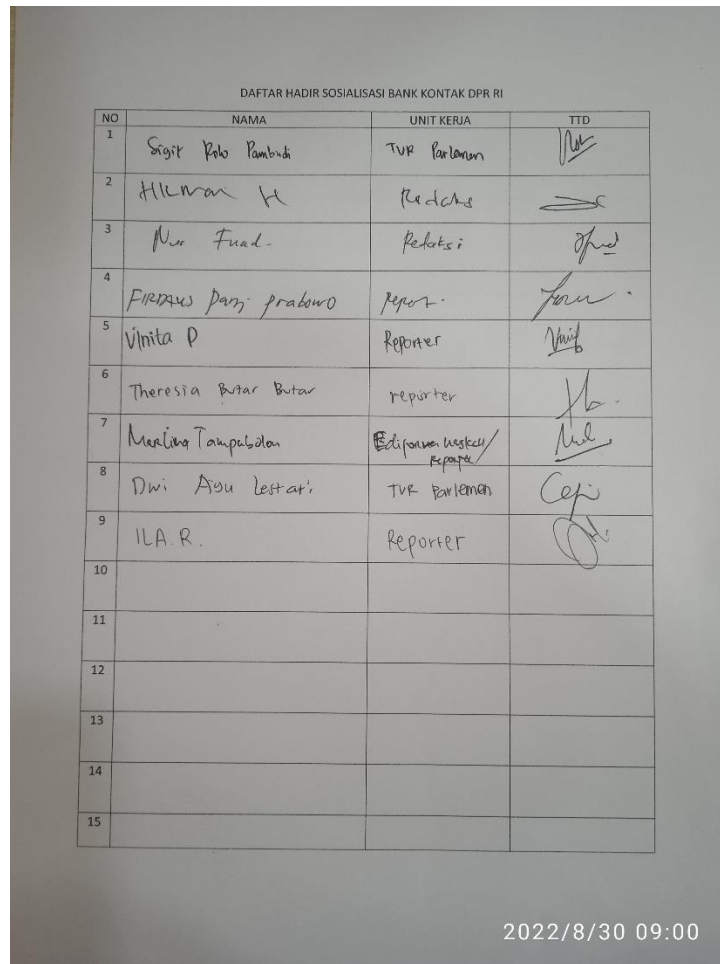 DAFTAR HADIR SOSIALISASI BANK KONTAK DPR RI
NO NAMA UNIT KERJA TTD
1 Sigit Pambudi TVR Parlemen
2 HIKMAH H Redaks
3 Nur Fuad Redaksi
4 FIRDAUS prabowo Repor.
5 Vinita D Reporter
6 Theresia Butar Butar reporter
7 Merlina Tampubolon
Reporter
8 Dwi Ayu Lestari TVR Parlemen
9 ILA.R. Reporter
10
11
12
13
14
15
2022/8/30 09:00